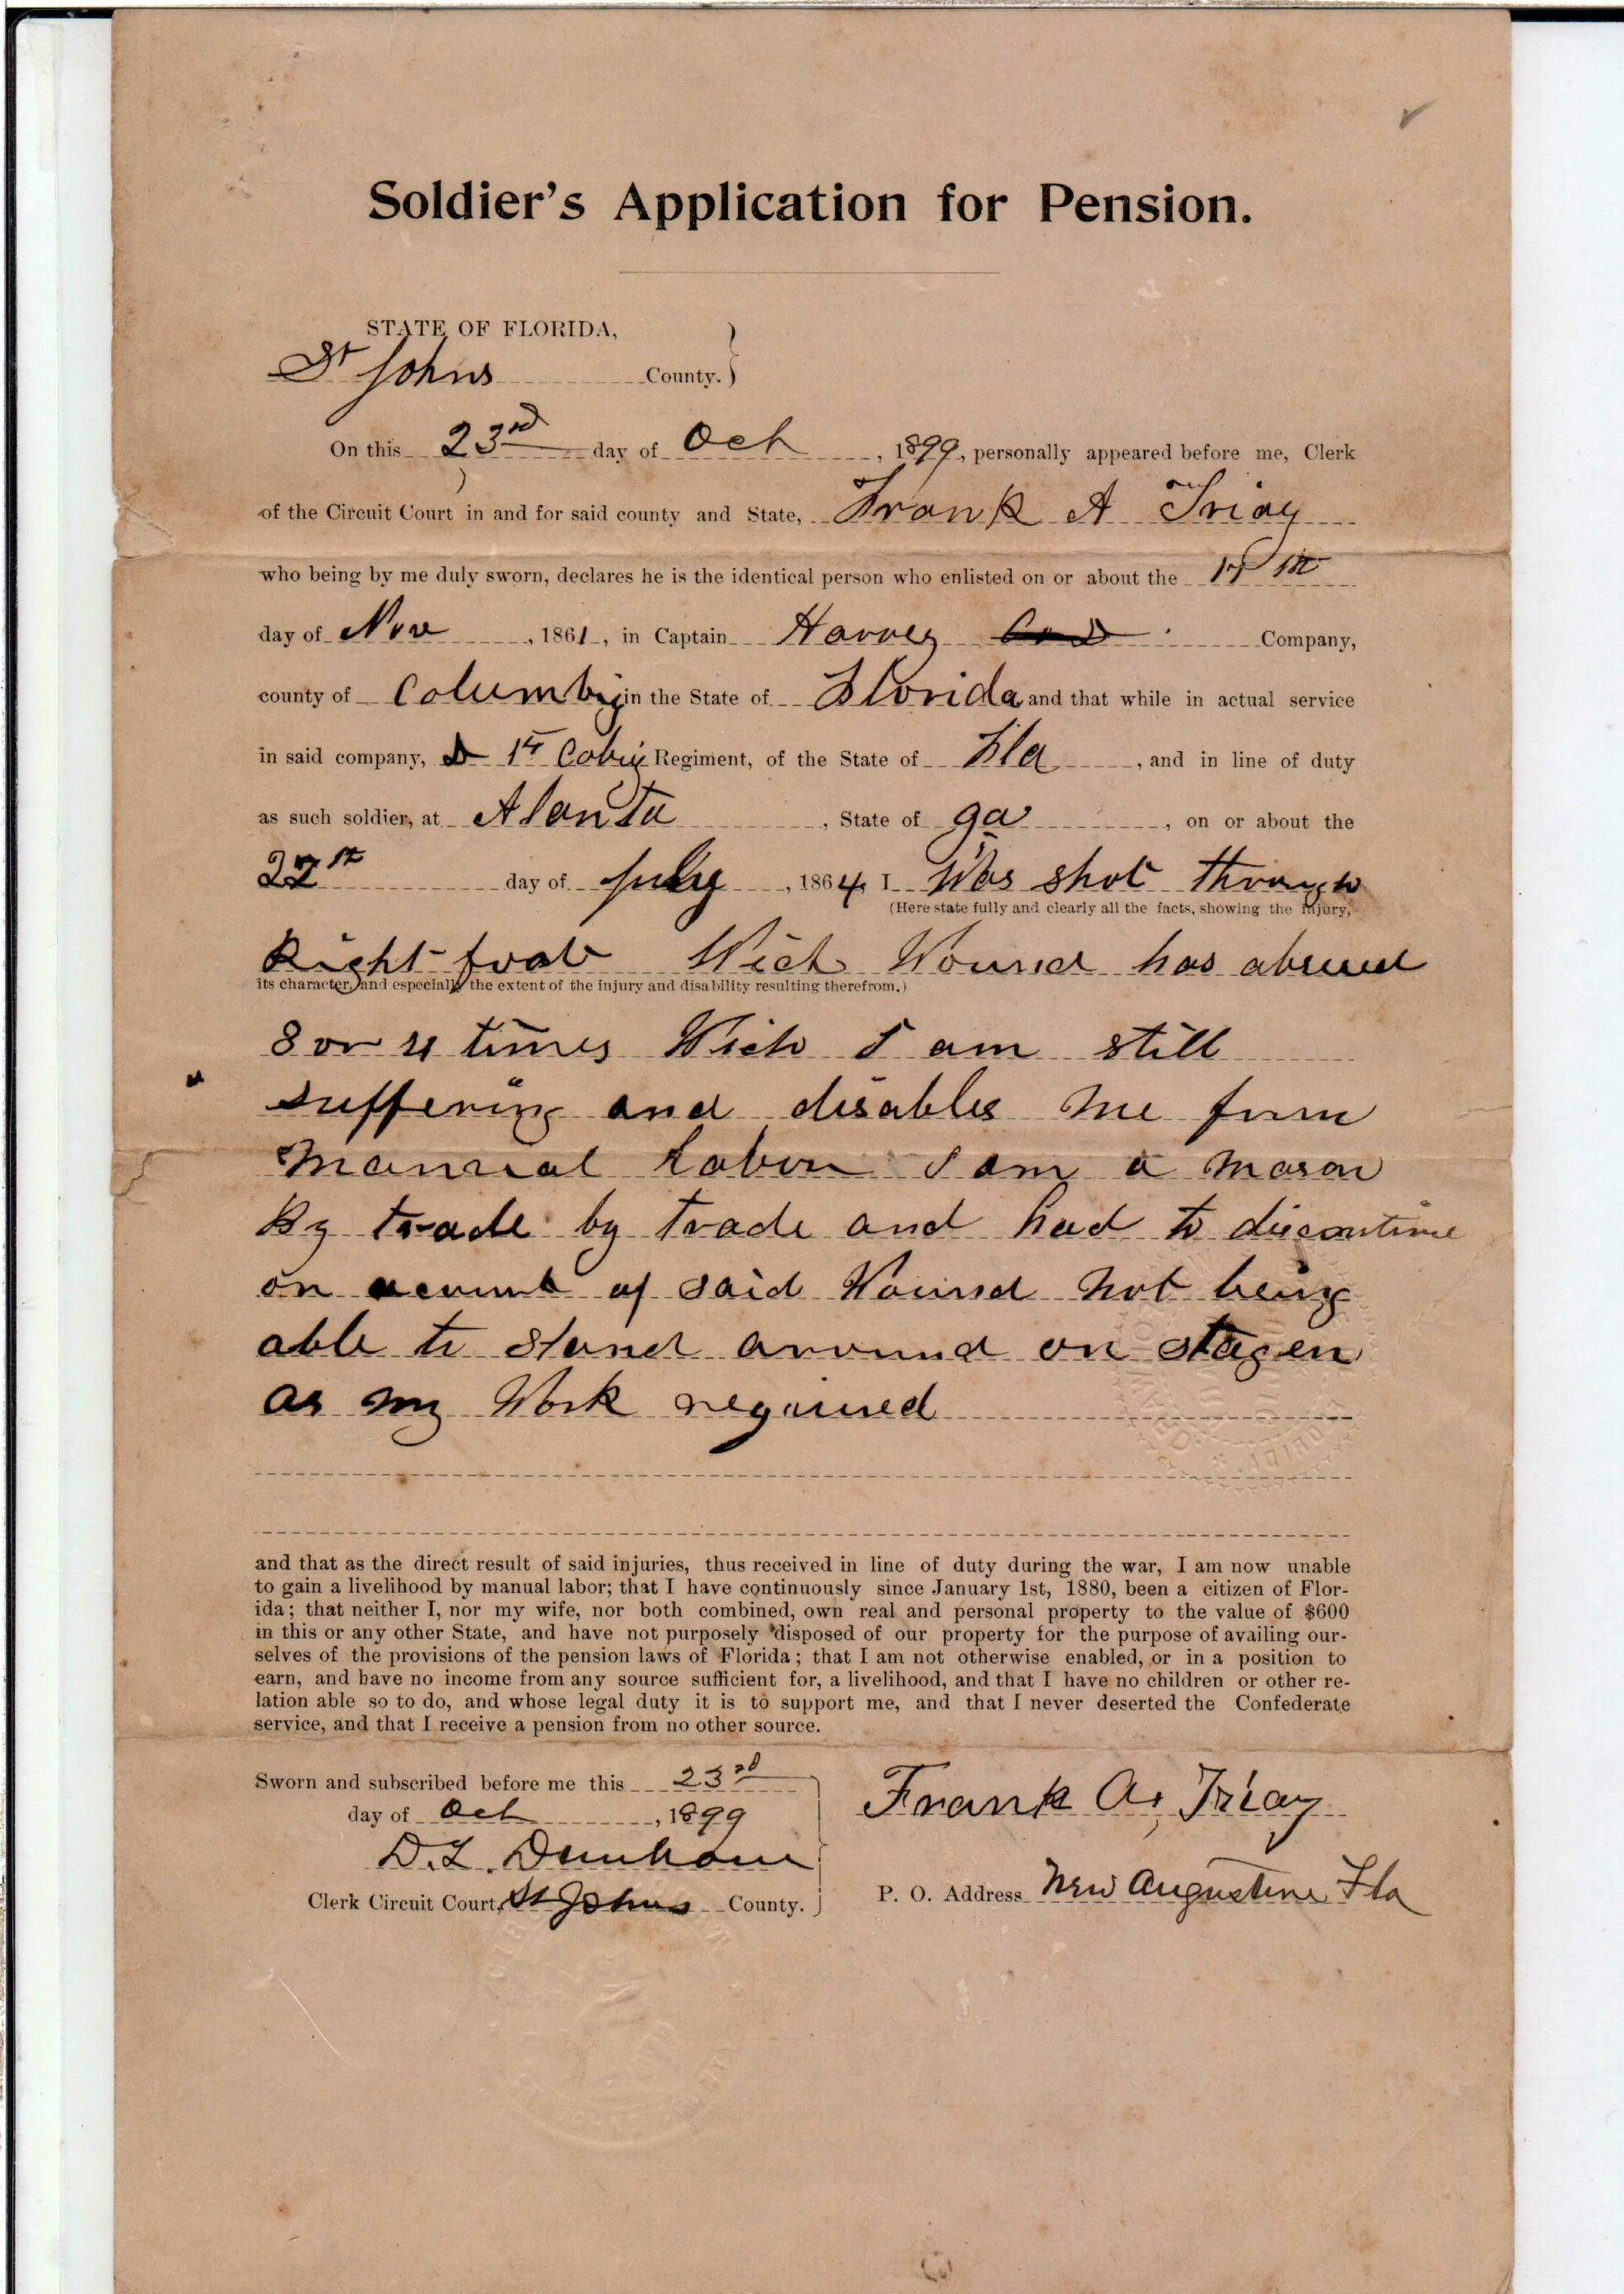 Soldier's Application for Pension.
STATE OF FLORIDA,
St Johns County.
On this 23rd day of Oct, 1899, personally appeared before me, Clerk
of the Circuit Court in and for said county and State, Frank A Triay
who being by me duly sworn, declares he is the identical person who enlisted on or about the
day of Nov, 1861, in Captain Harvey Company,
county of Columbia in the State of Florida and that while in actual service
in said company, D 1st Regiment, of the State of Fla, and in line of duty
as such soldier, at Alanta, State of ga, on or about the
day of July, 1864, I Was shot through
(Here state fully and clearly all the facts, showing the injury,
Right foot Wich Wound has
its character, and especially the extent of the injury and disability resulting therefrom.)
3 or 4 times Wich I am still
suffering and disables me from
manual Labor I am a mason
By trade by trade and had to discontinue
on account of said Wound not being
able to stand around on stagen
as my Work required
and that as the direct result of said injuries, thus received in line of duty during the war, I am now unable
to gain a livelihood by manual labor; that I have continuously since January 1st, 1880, been a citizen of Flor-
ida; that neither I, nor my wife, nor both combined, own real and personal property to the value of $600
in this or any other State, and have not purposely disposed of our property for the purpose of availing our-
selves of the provisions of the pension laws of Florida; that I am not otherwise enabled, or in a position to
earn, and have no income from any source sufficient for, a livelihood, and that I have no children or other re-
lation able so to do, and whose legal duty it is to support me, and that I never deserted the Confederate
service, and that I receive a pension from no other source.
Sworn and subscribed before me this 23rd
day of Oct, 1899
D.L. Dunham
Clerk Circuit Court, St Johns County.
Frank A. Triay
P. O. Address New Augustine Fla